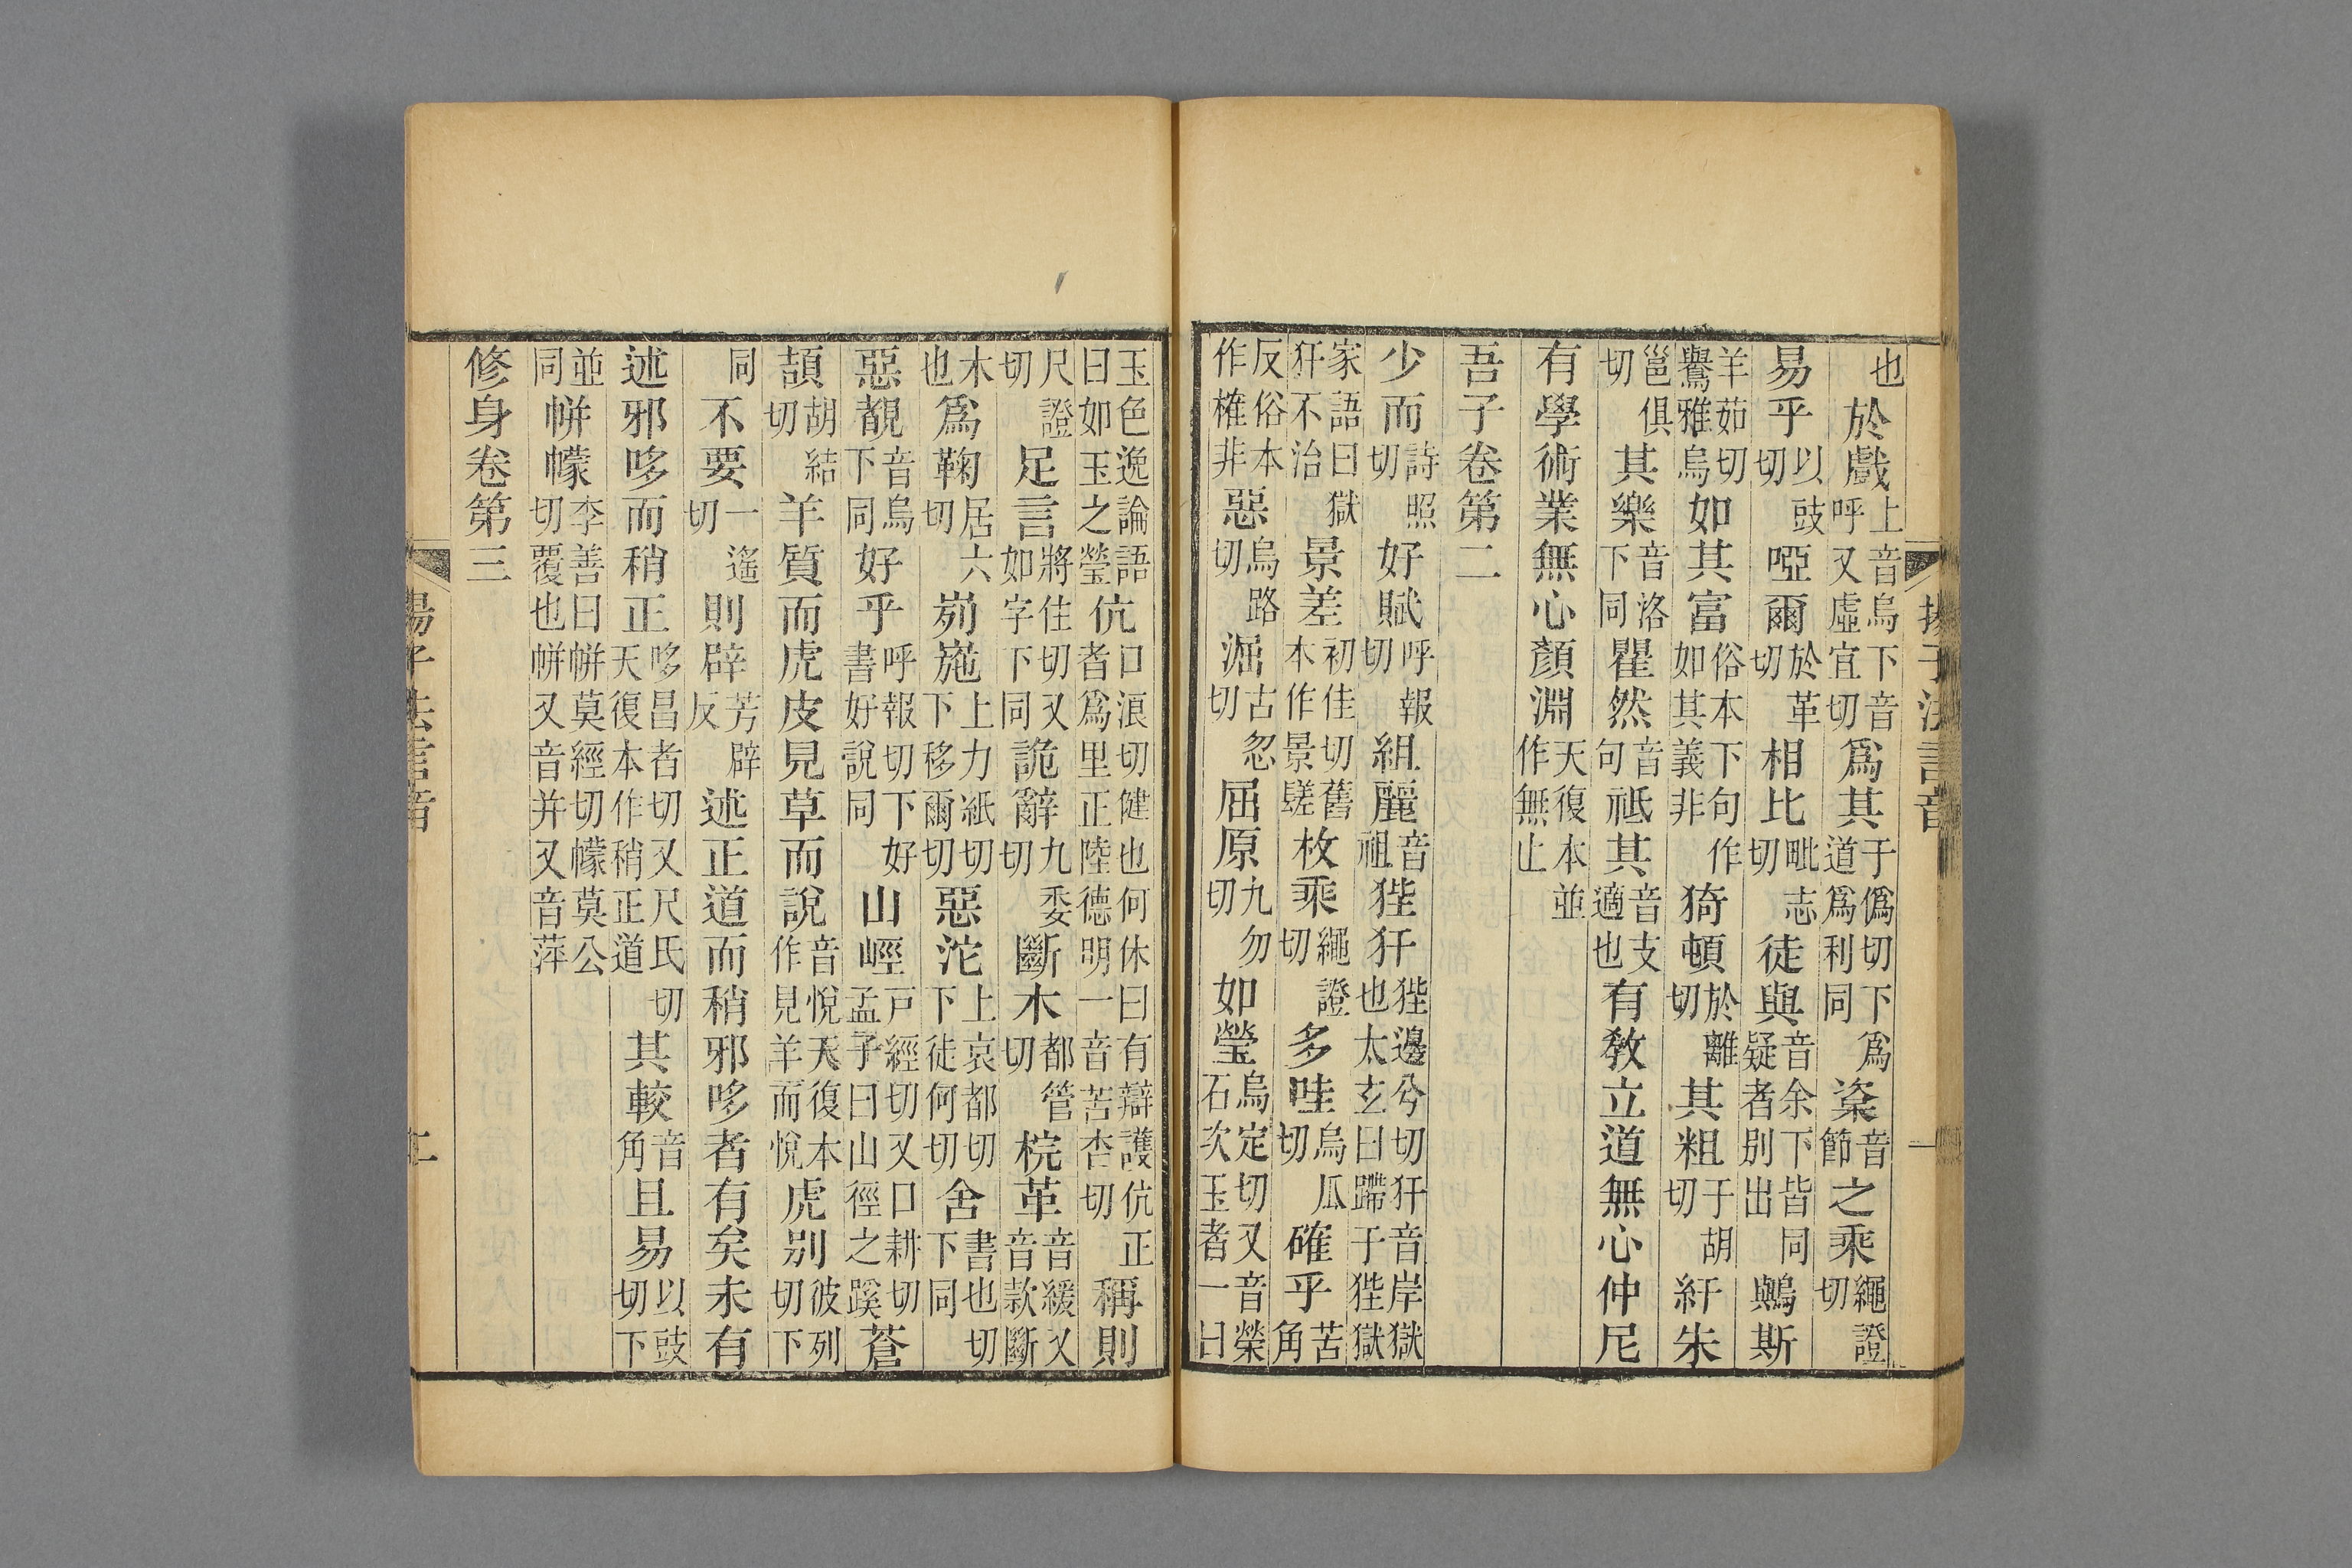 揚子法言音 一
也於戲上音烏下音呼又虛宜切爲其于僞切下爲道爲利同楶音節之乘繩證切
易乎以豉切啞爾於革切相比毗志切徒與音余下皆同疑者別出鸒斯
羊茹切鸒雅烏如其富俗本下句作如其義非猗頓於離切其粗于胡切紆朱
邕俱切其樂音洛下同瞿然音句祗其音支適也有教立道無心仲尼
有學術業無心顏淵天復本並作無止
吾子卷第二
少而詩照切好賦呼報切組麗音祖狴犴狴邊兮切犴音岸獄也太玄曰蹛于狴獄
家語曰獄犴不治景差初佳切舊本作景瑳枚乘繩證切多哇烏瓜切確乎苦角
反俗本作榷非惡烏路切淈古忽切屈原九勿切如瑩烏定切又音榮石次玉者一曰
玉色逸論語曰如玉之瑩伉口浪切健也何休曰有辯護伉正者爲里正陸德明一音苦杏切稱則
尺證切足言將住切又如字下同詭辭九委切斷木都管切梡革音緩又音款斷
木也爲鞠居六切峛崺上力紙切下移爾切惡沱上哀都切下徒何切舍書也切下同
惡覩音烏下同好乎呼報切下好書好說同山峌戶經切又口耕切孟子曰山徑之蹊蒼
頡胡結切羊質而虎皮見草而說音悅天復本作見羊而悅虎別彼列切下
同不要一遙切則辟芳辟反述正道而稍邪哆者有矣未有
述邪哆而稍正哆昌者切又尺氏切天復本作稍正道其較音角且易以豉切下
並同帡幪李善曰帡莫經切幪莫公切覆也帡又音并又音萍
修身卷第三
揚子法言音 二